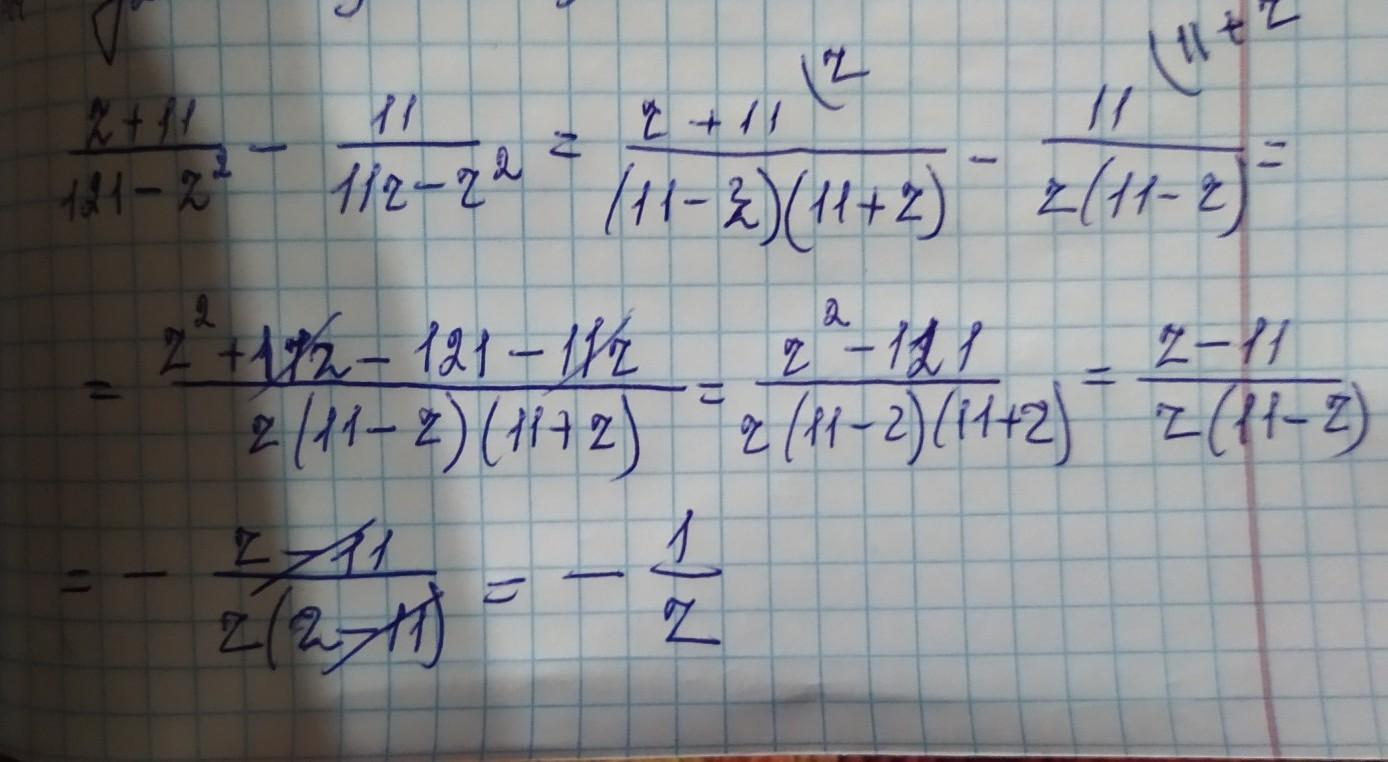 (z (11+z
z+11/121-z² - 11/11z-z² = z+11/(11-z)(11+z) - 11/z(11-z) =
= z²+11z-121-11z/z(11-z)(11+z) = z²-121/z(11-z)(11+z) = z-11/z(11-z)
= - z-11/z(z-11) = - 1/z